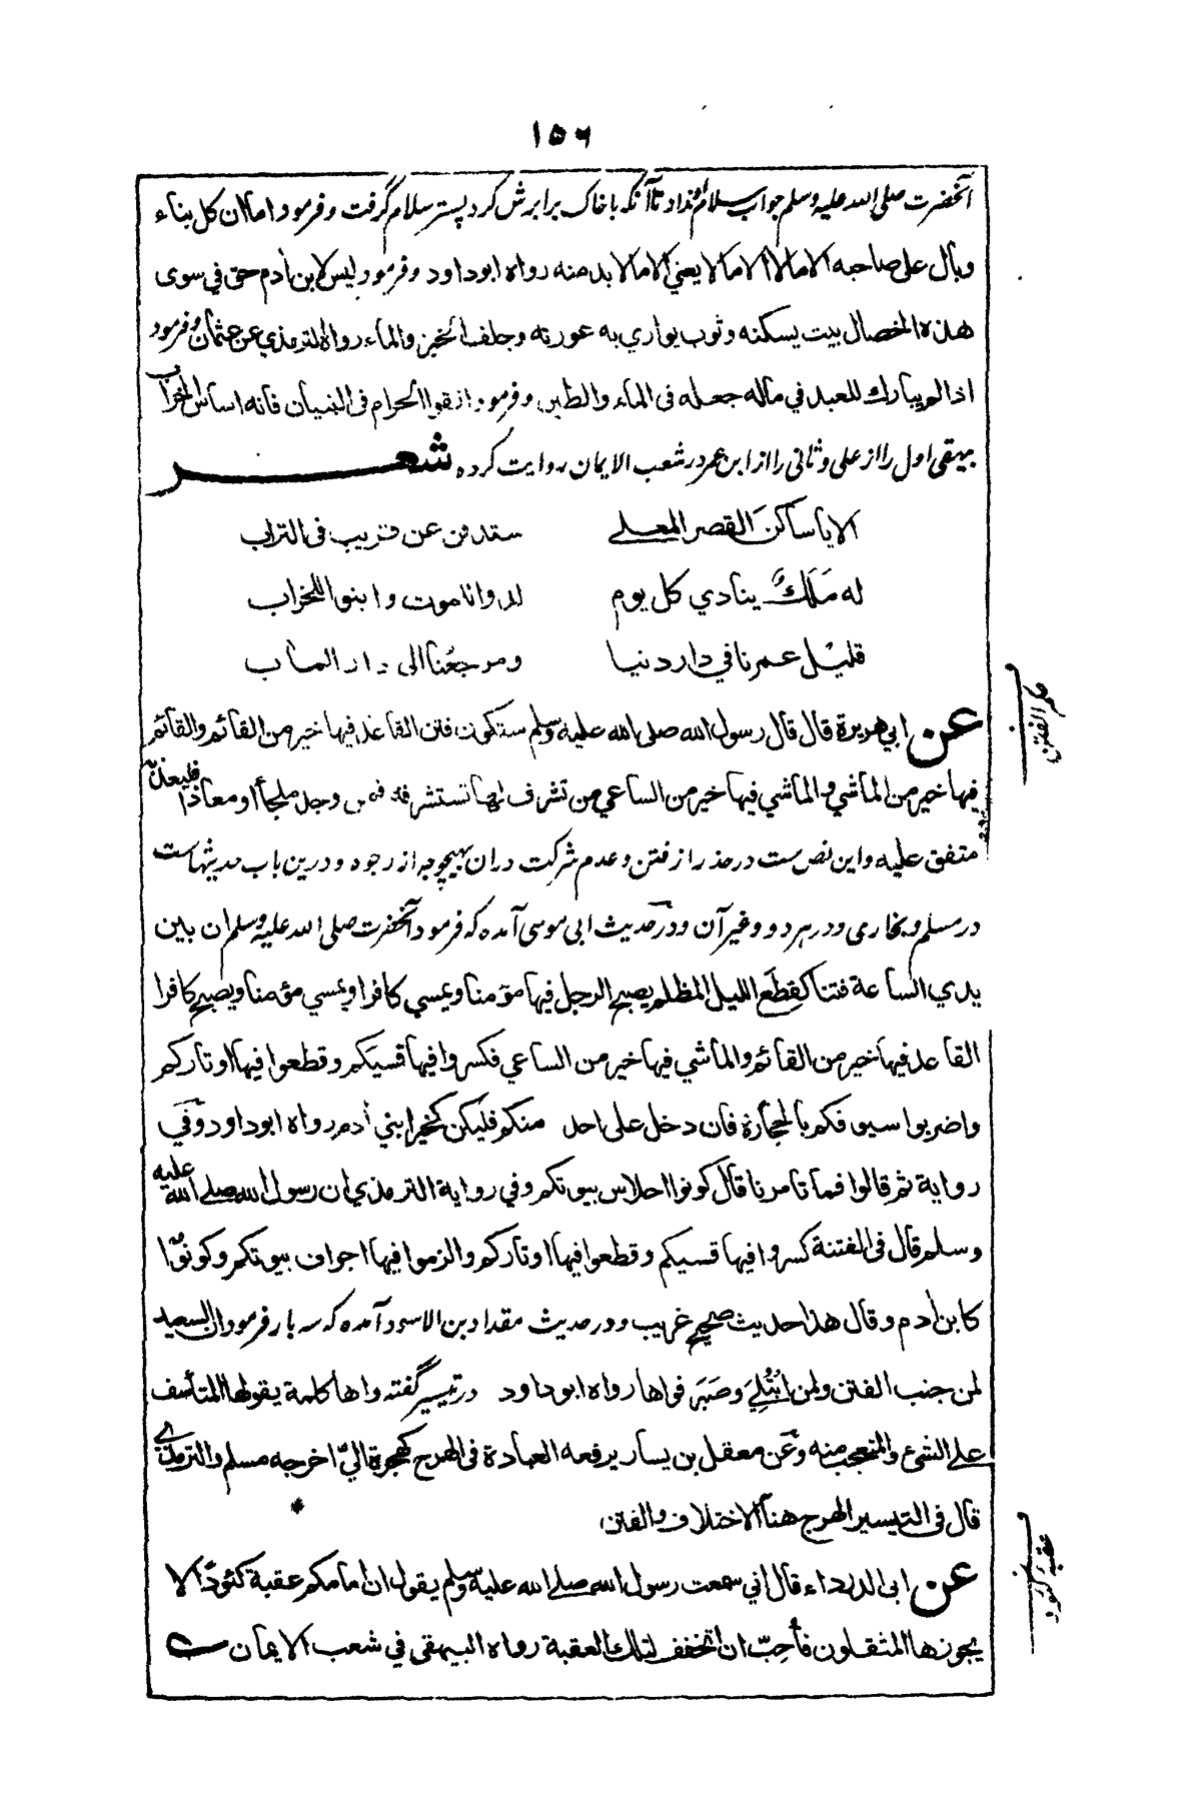 ١٥٦
آنحضرت صلی الله علیه وسلم جواب سلام او نداد تا آنکه با خاک برابرش کرد پستر سلام گرفت و فرمود اما ان کل بناء
وبال علی صاحبه الا مالا الا مالا یعنی الا مالا بد منه رواه ابوداود و فرمود لیس لابن ادم حق فی سوی
هذه الخصال بیت یسکنه وثوب یواری به عورته وجلف الخبز والماء رواه الترمذی عن عثمان و فرمود
اذا لم یبارک للعبد فی ماله جعله فی الماء والطین و فرمود اتقوا الحرام فی البنیان فانه اساس الخراب
بیهقی اول را از علی و ثانی را از ابن عمر در شعب الایمان روایت کرده شعر
الا یا ساکن القصر المعلے ستدفن عن قریب فی التراب
له مَلَكٌ ینادي کل یوم لدوا للموت وابنوا للخراب
قلیل عمرنا في دار دنیا ومرجعُنا الی دار المآب
عن ابي هریرة قال قال رسول الله صلی الله علیه وسلم ستکون فتن القاعد فیها خیر من القائم والقائم
فیها خیر من الماشي والماشي فیها خیر من الساعي من تشرف لها تستشرفه فمن وجد ملجأ او معاذا فلیعذ به
متفق علیه و این نص ست در حذر از فتن و عدم شرکت دران بهیچوجه از وجوه و درین باب حدیثهاست
در مسلم و بخاری و در هر دو و غیر آن و در حدیث ابی موسی آمده که فرمود آنحضرت صلی الله علیه وسلم ان بین
یدي الساعة فتنا کقِطَع اللیل المظلم یصبح الرجل فیها مؤمنا ویمسي کافرا ویمسي مؤمنا ویصبح کافرا
القاعد فیها خیر من القائم والماشي فیها خیر من الساعي فکسروا فیها قسیکم وقطعوا فیها اوتارکم
واضربوا سیوفکم بالحجارة فان دخل علی احد منکم فلیکن کخیر ابني أدم رواه ابوداود وفي
روایة ثم قالوا فما تامرنا قال کونوا احلاس بیوتکم وفي روایة الترمذي ان رسول الله صلے الله علیه
وسلم قال فی الفتنة کسروا فیها قسیکم وقطعوا فیها اوتارکم والزموا فیها اجواف بیوتکم وکونوا
کابن أدم وقال هذا حدیث صحیح غریب و در حدیث مقداد بن الاسود آمده که سه بار فرمود ان السعید
لمن جنب الفتن ولمن ابْتُلِيَ وصَبَرَ فواها رواه ابوداود در تیسیر گفته واها کلمة یقولها المتأسف
علی الشیء والمتعجب منه وعن معقل بن یسار یرفعه العبادة فی الهرج کهجرة اليّ اخرجه مسلم والترمذي
قال فی التیسیر الهرج هنا الاختلاف والفتن
عن ابی الدرداء قال اني سمعت رسول الله صلے الله علیه وسلم یقول ان امامکم عقبة کئودًا لا
یجوزها المثقلون فأحِبّ ان اتخفف لتلك العقبة رواه البیهقی في شعب الایمان